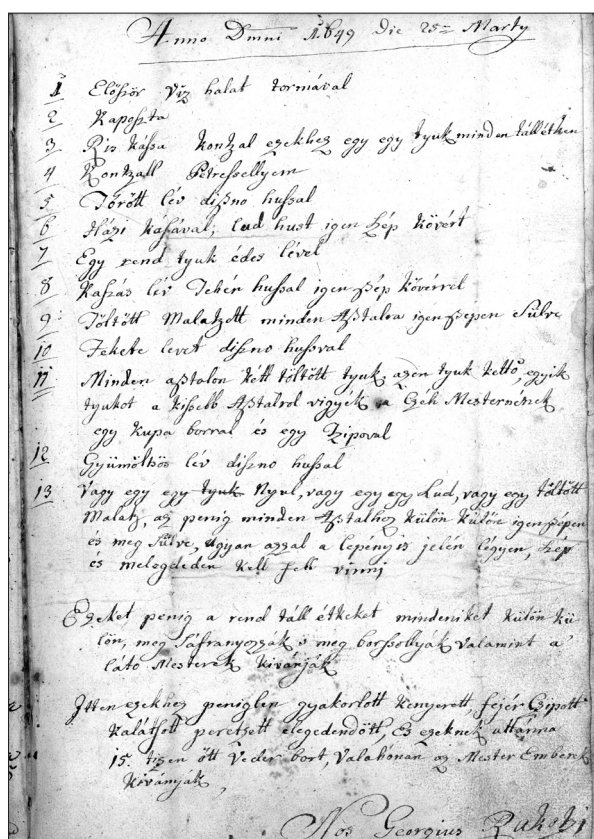 Anno Dmni 1649 Die 25 = Marty
1 Elöször Viz halat tormával
2 Kaposzta
3 Ris kása konzal ezekhez egy egy tyuk minden tállétken
4 Konzall Petresellyem
5 Törött lév diszno hussal
6 Házi kásával, lud hust igen szép kövért
7 Egy rend tyuk édes lével
8 Kaszás lév Tehén hussal igen szép kövérrel
9 Töltött Malatzott minden Asztalra igen szepen Sülve
10 Fekete levet diszno hussval
11 Minden asztalon kétt töltött tyuk, azon tyuk kettő, egyik
tyukot a kissebb Asztalrol vigyék a Czéh Mesternének
egy kupa borral és egy Tzipoval
12 Gyümöltsös lév diszno hussal
13 Vagy egy egy tyuk Nyul, vagy egy egy Lud, vagy egy töltött
Malatz, az penig minden Asztalhoz külön külön igen szépen
és meg Sülve, ugyan azzal a lepény is jelén légyen, szép
és melegdeden kell fell vinni
Ezeket penig a rend táll étkeket mindeniket külön kü
lön, meg Sáfranyozzák s meg borssollyák valamint a
látó Mesterek kivánják
Itten ezekhez peniglen gyakorlott kenyerett, fejér Czipott
kalátsott peretzett elegedendött, És ezeknek uttánna
15. tizen ött Veder bort, Valahonan az Mester Emberek
kiványák,
Nos Georgius Rakoczi